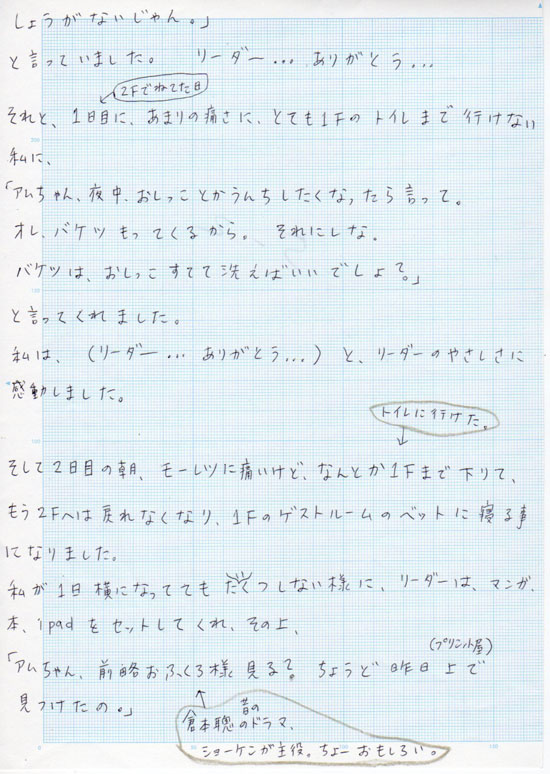 しょうがないじゃん。」
と言っていました。 リーダー... ありがとう...
2Fでねてた日
それと、1日目に、あまりの痛さに、とても1Fのトイレまで行けない
私に、
「アムちゃん、夜中、おしっことかうんちしたくなったら言って。
オレ、バケツもってくるから。 それにしな。
バケツは、おしっこすてて洗えばいいでしょ?。」
と言ってくれました。
私は、(リーダー... ありがとう...)と、リーダーのやさしさに
感動しました。
トイレに行けた。
そして2日目の朝、モーレツに痛いけど、なんとか1Fまで下りて、
もう2Fへは戻れなくなり、1Fのゲストルームのベットに寝る事
になりました。
私が1日横になってても たくつしない様に、リーダーは、マンガ、
本、ipadをセットしてくれ、その上、
(プリント屋)
「アムちゃん、前略おふくろ様見る?。ちょうど昨日上で
見つけたの。」
昔の
倉本聰のドラマ、
ショーケンが主役。ちょーおもしろい。